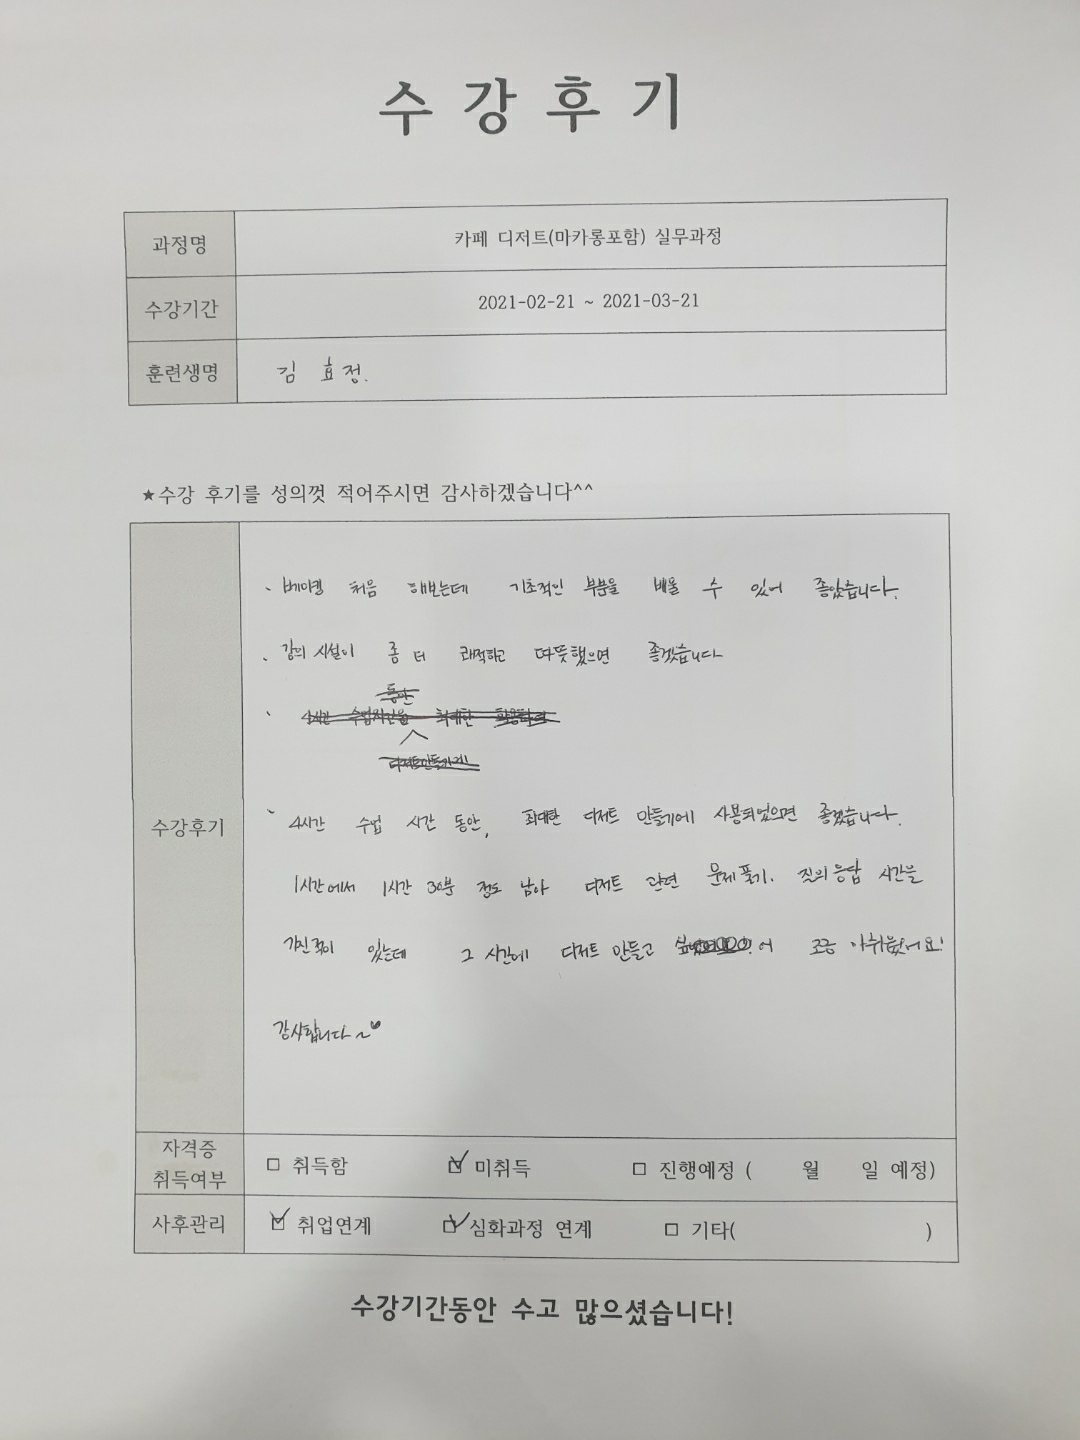 수강후기
과정명 카페 디저트(마카롱포함) 실무과정
수강기간 2021-02-21 ~ 2021-03-21
훈련생명 김 효정.
★수강 후기를 성의껏 적어주시면 감사하겠습니다^^
수강후기
、베이킹 처음 해보는데 기초적인 부분을 배울 수 있어 좋았습니다.
、강의 시설이 좀 더 쾌적하고 따뜻했으면 좋겠습니다
동안
4시간 수업시간을 최대한 활용하여
디저트만들기에
、4시간 수업 시간 동안, 최대한 디저트 만들기에 사용되었으면 좋겠습니다.
1시간에서 1시간 30분 정도 남아 디저트 관련 문제풀기. 질의응답 시간을
가진적이 있는데 그 시간에 디저트 만들고 어 조금 아쉬웠어요!
감사합니다~♥
자격증 취득여부 □ 취득함 ☑ 미취득 □ 진행예정 ( 월 일 예정)
사후관리 ☑ 취업연계 ☑ 심화과정 연계 □ 기타( )
수강기간동안 수고 많으셨습니다!